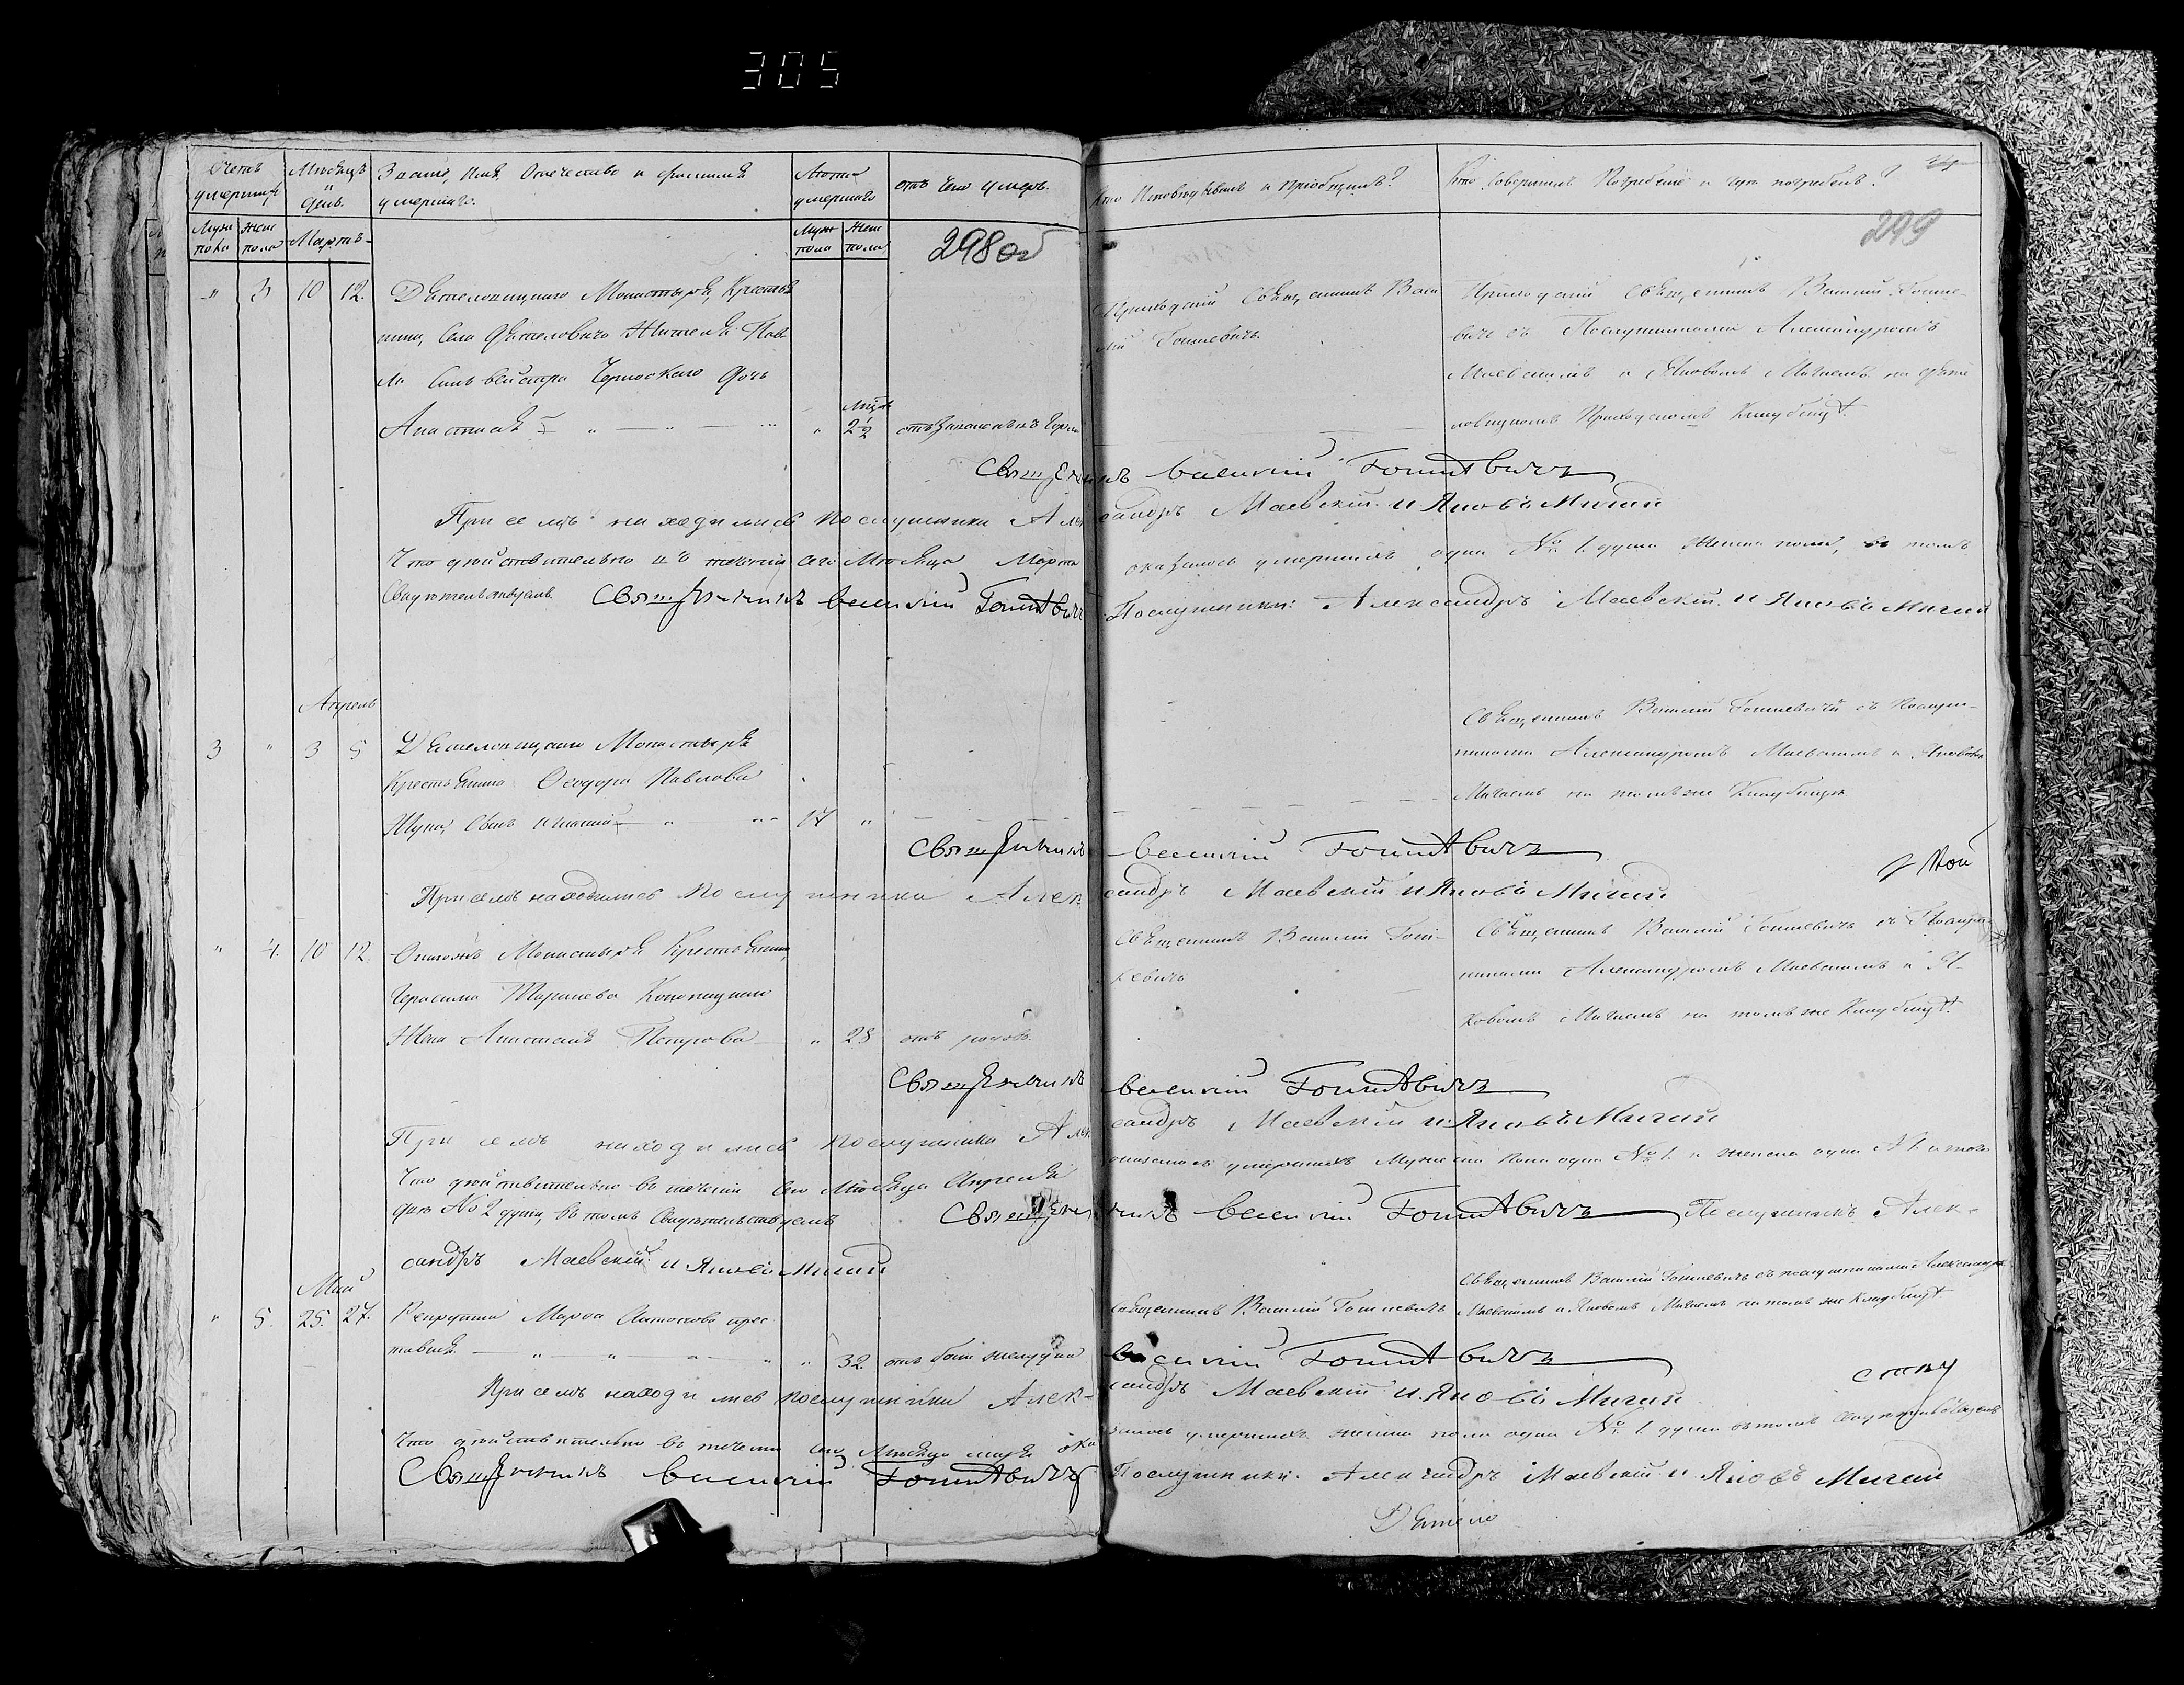 305
Счетъ умершихъ
Мѣсяцъ и день
Званіе, Имя, Отечество и фамилія умершаго.
Лѣта умершаго
отъ чего умеръ.
Кто Исповѣдывалъ и пріобщилъ?
Кто совершилъ Погребеніе и гдѣ погребенъ?
34
Муж пола
Жен пола
Мартъ
Муж пола
Жен пола
298 об
299
" 3 10 12.
Дятеловицкаго Монастыря, Крестья
нина, Села Дятеловичъ Жителя Пав
ла Сильвестра дочь
Анастасія " "
" Мцъ 2½
Приходскій Священникъ Васи
лій Гошкевичъ.
Приходскій Священникъ Василій Гошке-
вичъ съ Послушниками Александромъ
Маевскимъ и Яковомъ Мигаемъ на Дяте
ловицкомъ Приходскомъ Кладбищѣ.
Священникъ Василій Гошкевичъ
При семъ находились послушники Александръ Маевскій и Яковъ Мигай
Что дѣйствительно въ теченіи сего Мѣсяца Марта оказалось умершихъ одна № 1 душа Женска пола, въ томъ
Свидѣтельствуемъ. Священникъ Василій Гошкевичъ Послушники: Александръ Маевскій и Яковъ Мигай
Апрель
3 " 3 5
Дятеловицкаго Монастыря
Крестьянина Ѳеодора Павлова
Сынъ Игнатій " "
17 "
Священникъ Василій Гошкевичъ съ Послуш-
никами Александромъ Маевскимъ и Яковомъ
Мигаемъ на томъ же Кладбищѣ.
Священникъ Василій Гошкевичъ
При семъ находились послушники Александръ Маевскій и Яковъ Мигай
" 4. 10 12.
Онагожъ Монастыря Крестьянина
Герасима
Жена Анастасія Петрова
" 28 отъ родовъ.
Священникъ Василій Гош-
кевичъ
Священникъ Василій Гошкевичъ съ Послуш-
никами Александромъ Маевскимъ и Я-
ковомъ Мигаемъ на томъ же Кладбищѣ.
Священникъ Василій Гошкевичъ
При семъ находились послушники Александръ Маевскій и Яковъ Мигай
Что дѣйствительно въ теченіи сего Мѣсяца Апреля оказалось умершихъ Мужеска Пола одна № 1. и женска одна № 1.
№ 2 души, въ томъ Свидѣтельствуемъ Священникъ Василій Гошкевичъ Послушникъ Алек-
сандръ Маевскій и Яковъ Мигай
Май
" 5. 25. 27.
Марѳа Антонова
" " " 32 отъ боли желудка
Священникъ Василій Гошкевичъ
Священникъ Василій Гошкевичъ съ послушниками Александромъ
Маевскимъ и Яковомъ Мигаемъ на томъ же Кладбищѣ.
Василій Гошкевичъ
При семъ находились послушники Александръ Маевскій и Яковъ Мигай
Что дѣйствительно въ теченіи сего Мѣсяца маія оказалось умершихъ женска пола одна № 1. душа въ томъ Свидѣтельствуемъ
Священникъ Василій Гошкевичъ Послушники: Александръ Маевскій и Яковъ Мигай
Дятело